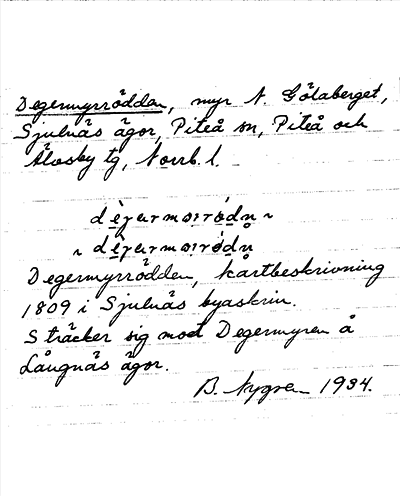 Degermyrrödden, myr N. Götaberget,
Sjulnäs ägor, Piteå sn, Piteå och
Älvsby tg, Norrb. l.
Degermyrrödden, kartbeskrivning
1809 i Sjulnäs byaskrin.
Sträcker sig mot Degermyren å
Långnäs ägor.
B. Nygren 1934.